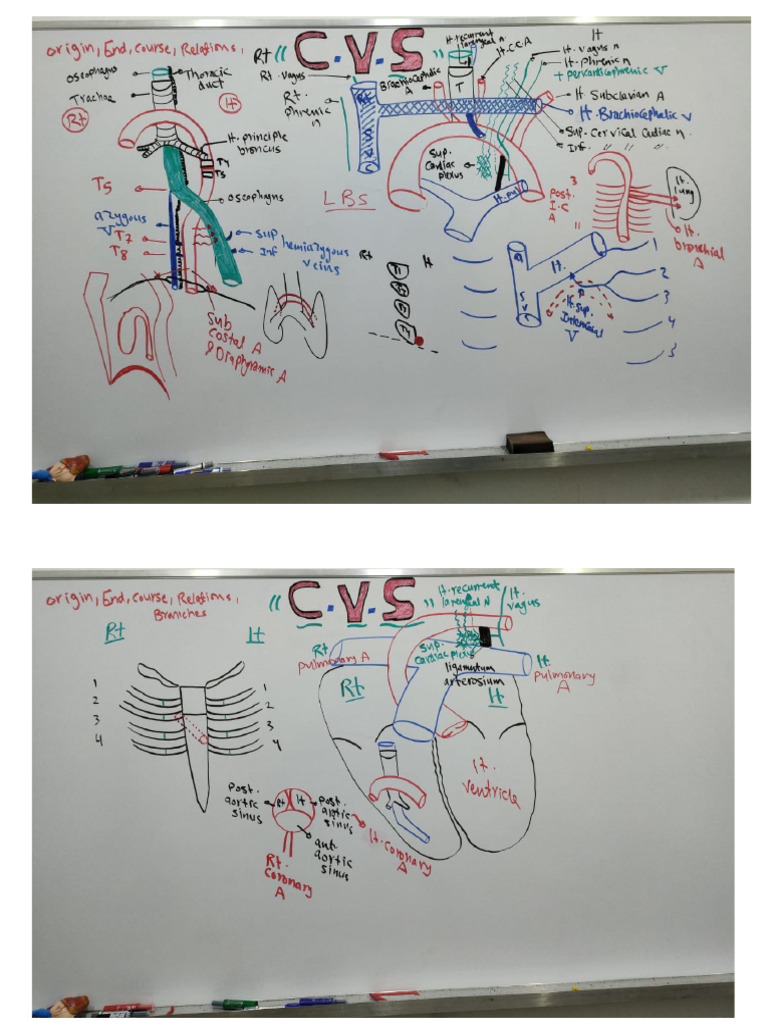 origin, End, course, Relations,
Rt
" C.V.S "
lt. recurrent
laryngeal n.
lt. C.C.A
lt
lt. vagus n
lt. phrenic n
+ pericardiophrenic V
lt. Subclavian A
lt. Brachiocephalic V
Sup. Cervical Cardiac n.
Inf. " " "
Rt. vagus
Brachiocephalic
A
Rt.
phrenic
n
T
Sup.
Cardiac
plexus
lt. pul
LBS
oseophagus
Thoracic
duct
Trachae
Rt
lt
lt. principle
broncus
T4
T5
T5
oseophagus
azygous
V
T7
T8
sup
Inf
hemiazygous
veins
Sub
Costal A
& Diaphyramic A
Rt
lt
3
post.
I.C
A
11
lt.
lung
lt.
bronchial
A
S
V
lt.
lt. sup.
Intercostal
V
1
2
3
4
5
origin, End, course, Relations,
Branches
" C.V.S "
lt. recurrent
laryngeal N
lt.
vagus
Rt
lt
Rt
pulmonary A
sup.
cardiac plexus
ligamentum
arterosium
lt
pulmonary
A
Rt
lt
1
2
3
4
1
2
3
4
lt.
ventricle
post.
aortic
sinus
Rt
lt
post.
aortic
sinus
ant.
aortic
sinus
lt. coronary
A
Rt.
coronary
A